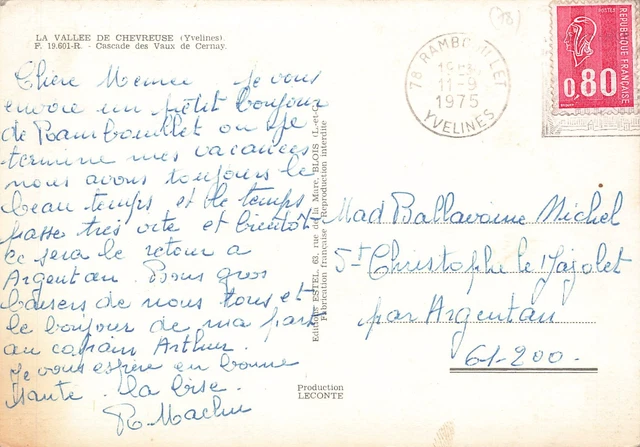 LA VALLEE DE CHEVREUSE (Yvelines)
F. 19.601-R. - Cascade des Vaux de Cernay.
Chère Mémée je vous
envoie un petit bonjour
de Rambouillet ou je
termine mes vacances
nous avons toujours le
beau temps et le temps
passe très vite et bientôt
ce sera le retour a
Argentan. Bons gros
baisers de nous tous et
le bonjour de ma part
au copain Arthur.
Je vous espère en bonne
santé. la bise.
R. Machu
Editions ESTEL, 63, rue de la Mare, BLOIS (L.-et-C.)
Fabrication française (Reproduction interdite
Production
LECONTE
(18)
78 RAMBOUILLET
11-9
1975
YVELINES
POSTES
REPUBLIQUE FRANÇAISE
0,80
Mad Ballavoine Michel
5-St Christophe le Jajolet
par Argentan
61-200.